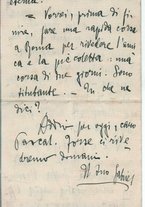 — Vorrei, prima di fi-
nire, fare una rapida corsa
a Roma per rivedere l'ami-
ca e la
corsa di due giorni. Sono
titubante. — Tu che ne
dici?
Addio per oggi, caro
Pascal. Forse ci rive-
dremo domani.
Il tuo